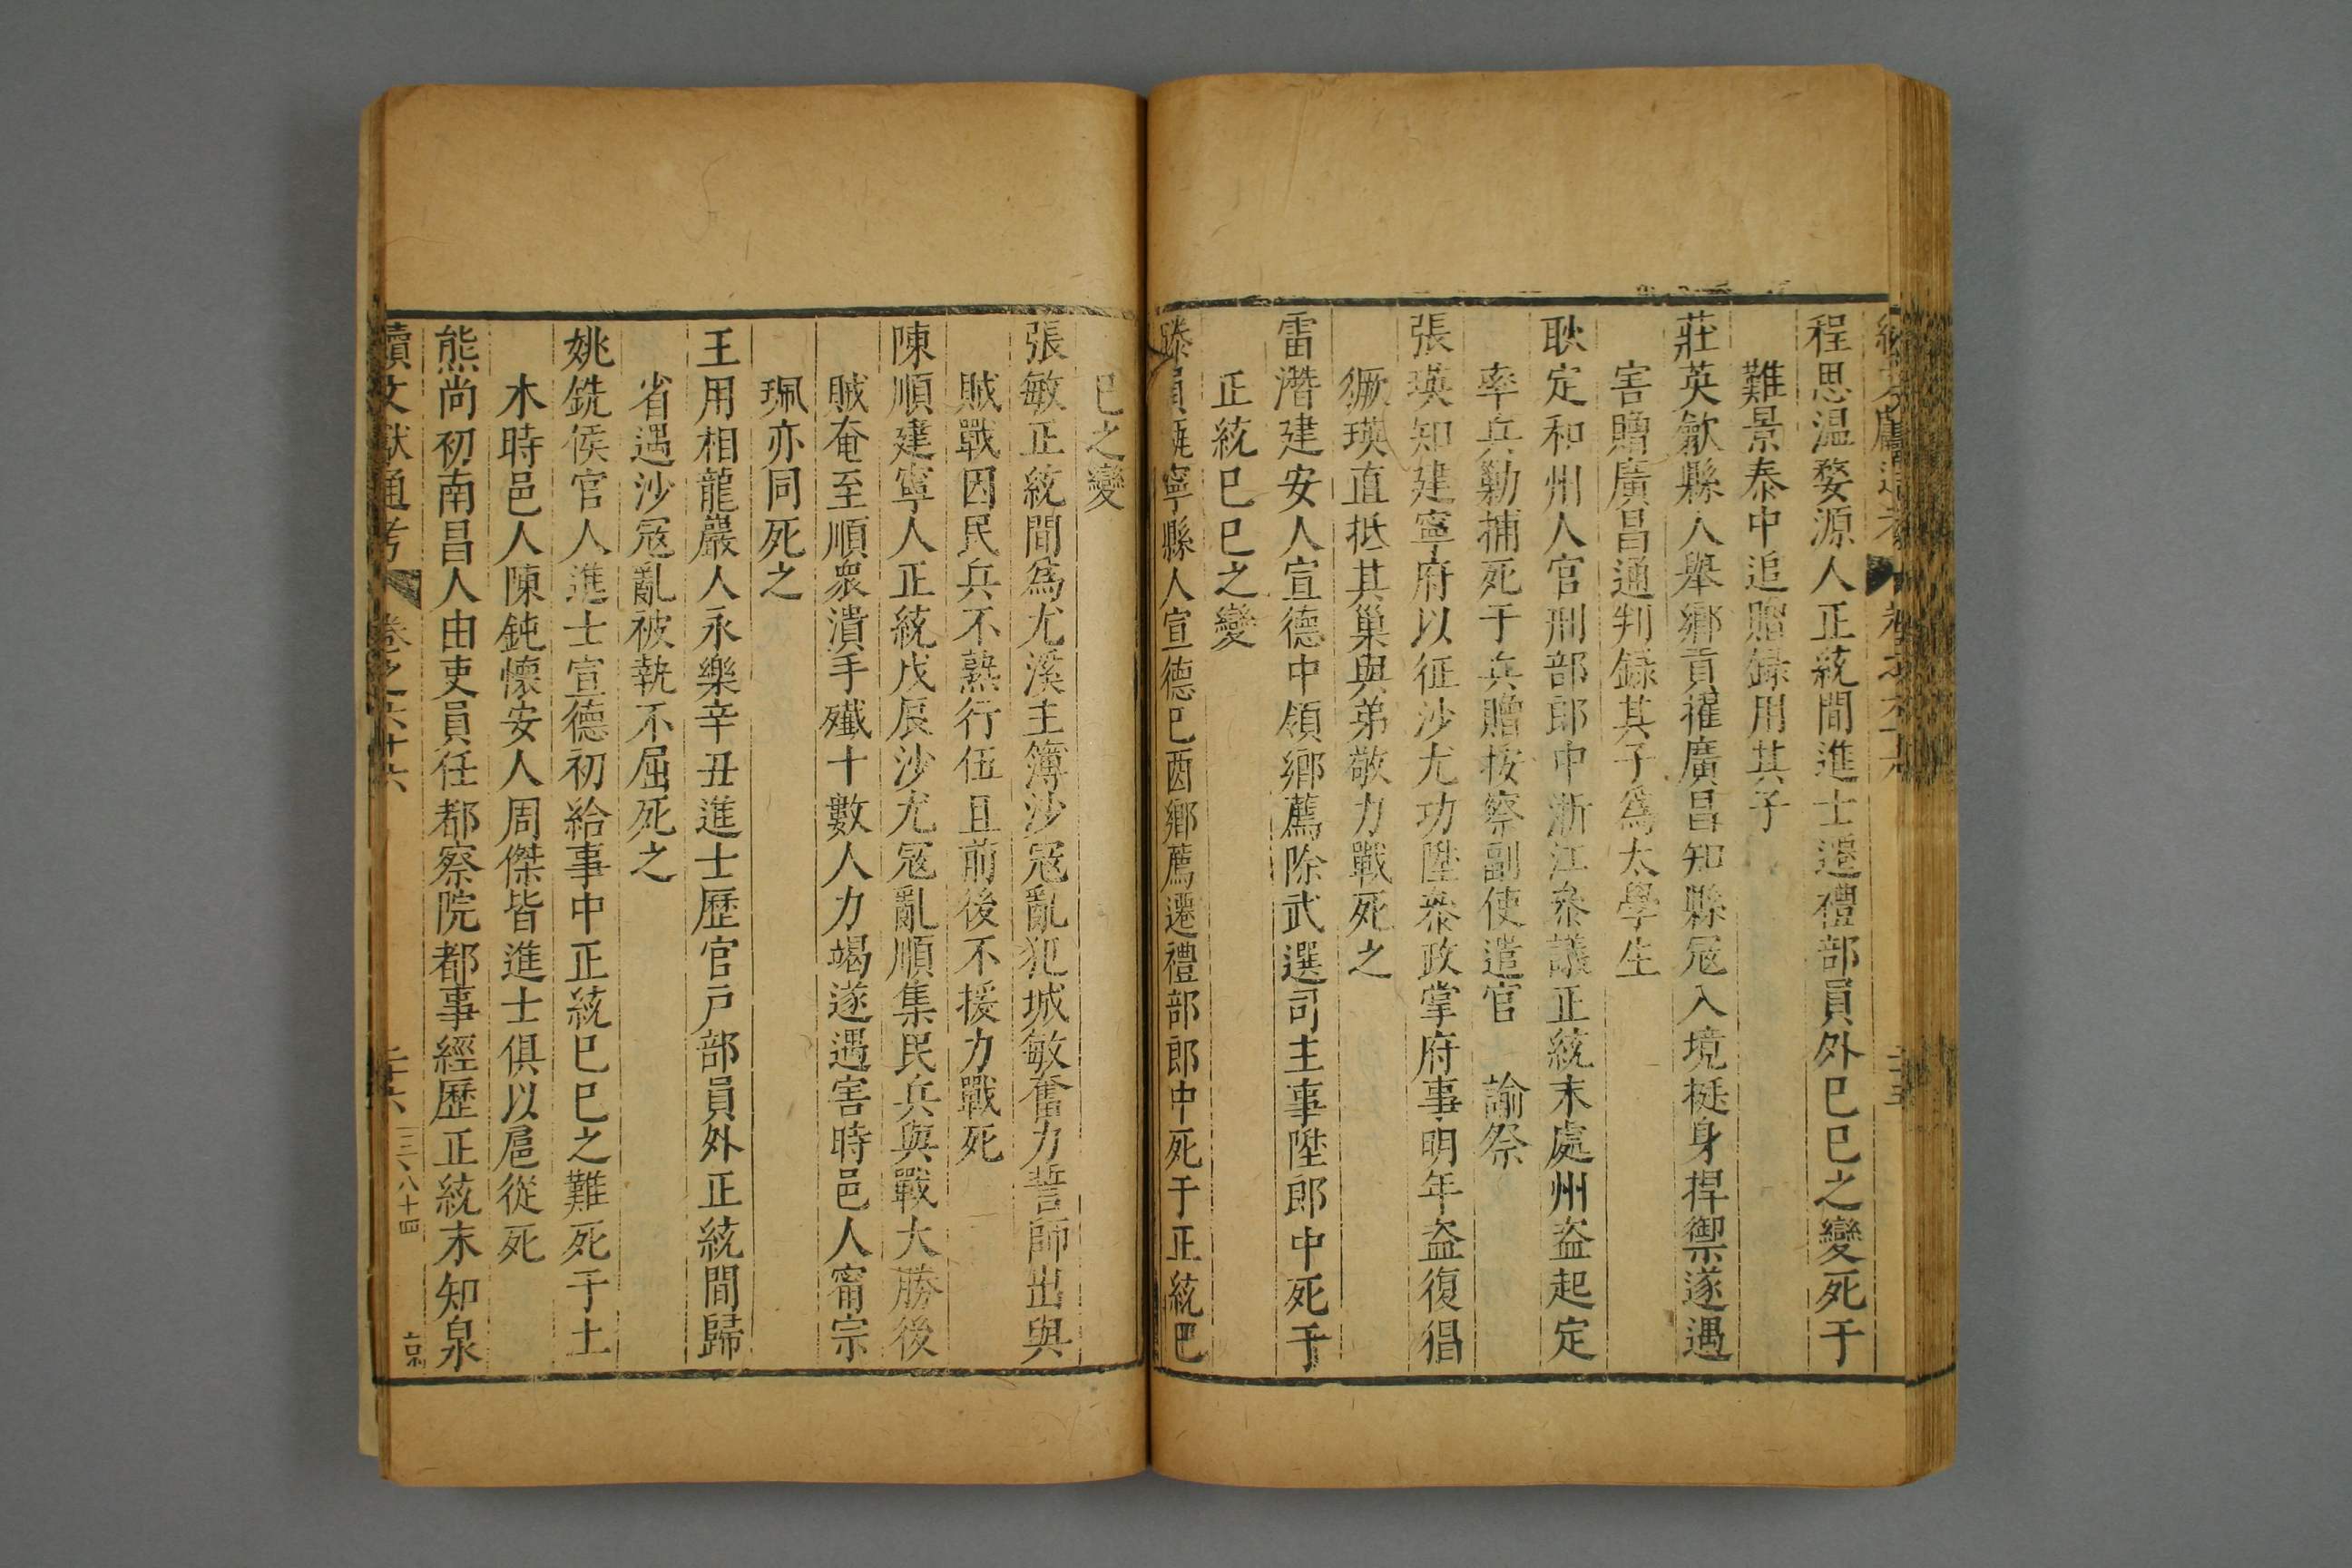 程思温婺源人正統間進士選禮部員外巳巳之變死于
難景泰中追贈録用其子
莊英歙縣人舉鄉貢擢廣昌知縣冦入境挺身捍禦遂遇
害贈廣昌通判録其子為太學生
耿定和州人官刑部郎中浙江叅議正統末處州盗起定
率兵勦捕死于兵贈按察副使遣官 諭祭
張瑛知建寧府以征沙尤功陞叅政掌府事明年盗復猖
獗瑛直抵其巢與弟敬力戰死之
雷潛建安人宣德中領鄉薦除武選司主事陞郎中死于
正統巳巳之變
滕員甌寧縣人宣德巳酉鄉薦遷禮部郎中死于正統巳
巳之變
張敏正統間為尤溪主簿沙冦亂犯城敏奮力誓師出與
賊戰因民兵不熟行伍且前後不援力戰死
陳順建寧人正統戊辰沙尤冦亂順集民兵與戰大勝後
賊奄至順衆潰手殱十數人力竭遂遇害時邑人甯宗
珮亦同死之
王用相龍巖人永樂辛丑進士歷官戸部員外正統間歸
省遇沙冦亂被執不屈死之
姚銑侯官人進士宣德初給事中正統巳巳之難死于土
木時邑人陳鈍懷安人周傑皆進士俱以扈從死
熊尚初南昌人由吏員任都察院都事經歷正統末知泉
續文獻通考 卷之六十六 二十六 三八十四